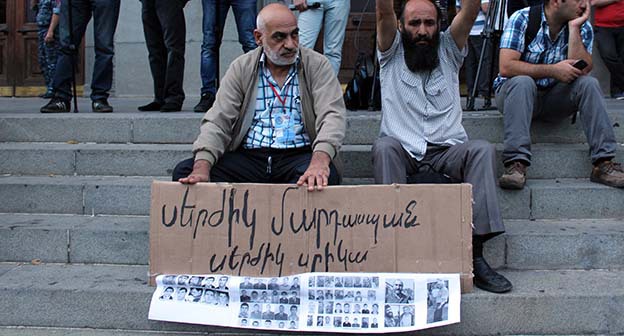 Սերժիկ Մարդասպան
սերժիկ սրիկա